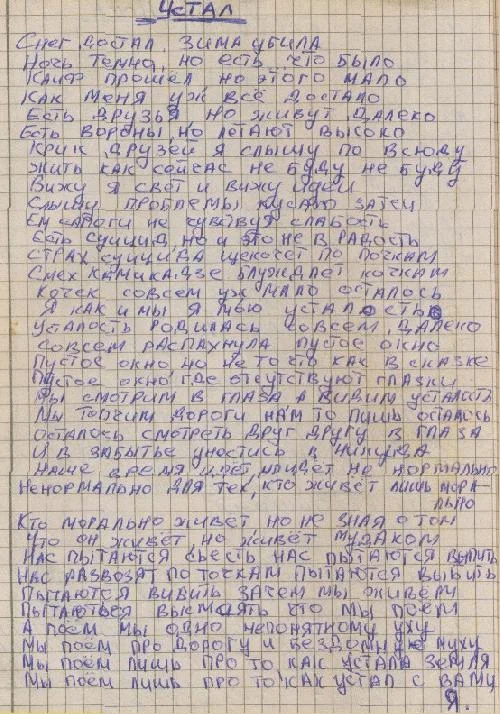 Устал
Снег достал, зима убила
Ночь темна, но есть что было
Кайф прошёл но этого мало
Как меня уж всё достало
Есть друзья но живут далеко
Есть вороны, но летают высоко
Крик друзей я слышу по всюду
Жить как сейчас не буду не буду
Вижу я свет и вижу идеи
Слышу проблемы кусаю затеи
Ем сапоги не чувствуя слабость
Есть суицид, но и это не в радость
Страх суицида щекочет по почкам
Смех камикадзе блуждает кочкам
Кочек совсем уж мало осталось
Я как и мы я мою усталость
Усталость родилась совсем далеко
Совсем распахнула пустое окно
Пустое окно, но не то что как в сказке
Пустое окно, где отсутствуют глазки
Мы смотрим в глаза а видим усталость
Мы топчим дороги нам то лишь осталось
Осталось смотреть друг другу в глаза
И в забытье уностись в никуда
Наше время идет, идет не нормально
Ненормально для тех, кто живёт лишь мораль-
льно
Кто морально живёт но не зная о том
Что он живёт, но живёт мудаком
Нас пытаются сьесть нас пытаются выпить
Нас развозят по точкам пытаются выбить
Пытаются видить зачем мы живём
Пытаються высмоять что мы поём
А поём мы одно непонятному уху
Мы поём про дорогу и бездомную муху
Мы поём лишь про то, как устала земля
Мы поём лишь про то как устал с вами
Я.